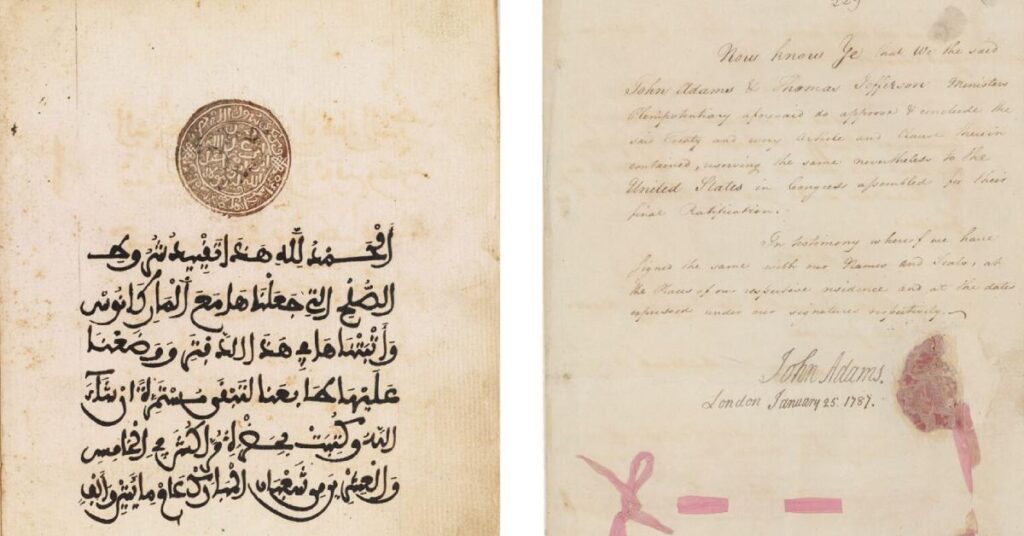 الحمد لله هذا تقييد شروط
الصلح التي جعلناها مع الماركانوس
وأثبتناها في هذا الدفتر ووضعنا
عليها طابعنا لتبقى مستمرة إن شاء
الله وكتبت بحضرة مراكش في الخامس
والعشرين من شعبان المبارك عام مائتين وألف
Now know Ye that We the said
John Adams & Thomas Jefferson Ministers
Plenipotentiary aforesaid do approve & conclude the
said Treaty and every Article and Clause therein
contained, reserving the same nevertheless to the
United States in Congress assembled for their
final Ratification.
In testimony whereof we have
signed the same with our Names and Seals, at
the Places of our respective residence and at the dates
expressed under our signatures respectively.
John Adams.
London January 25. 1787.